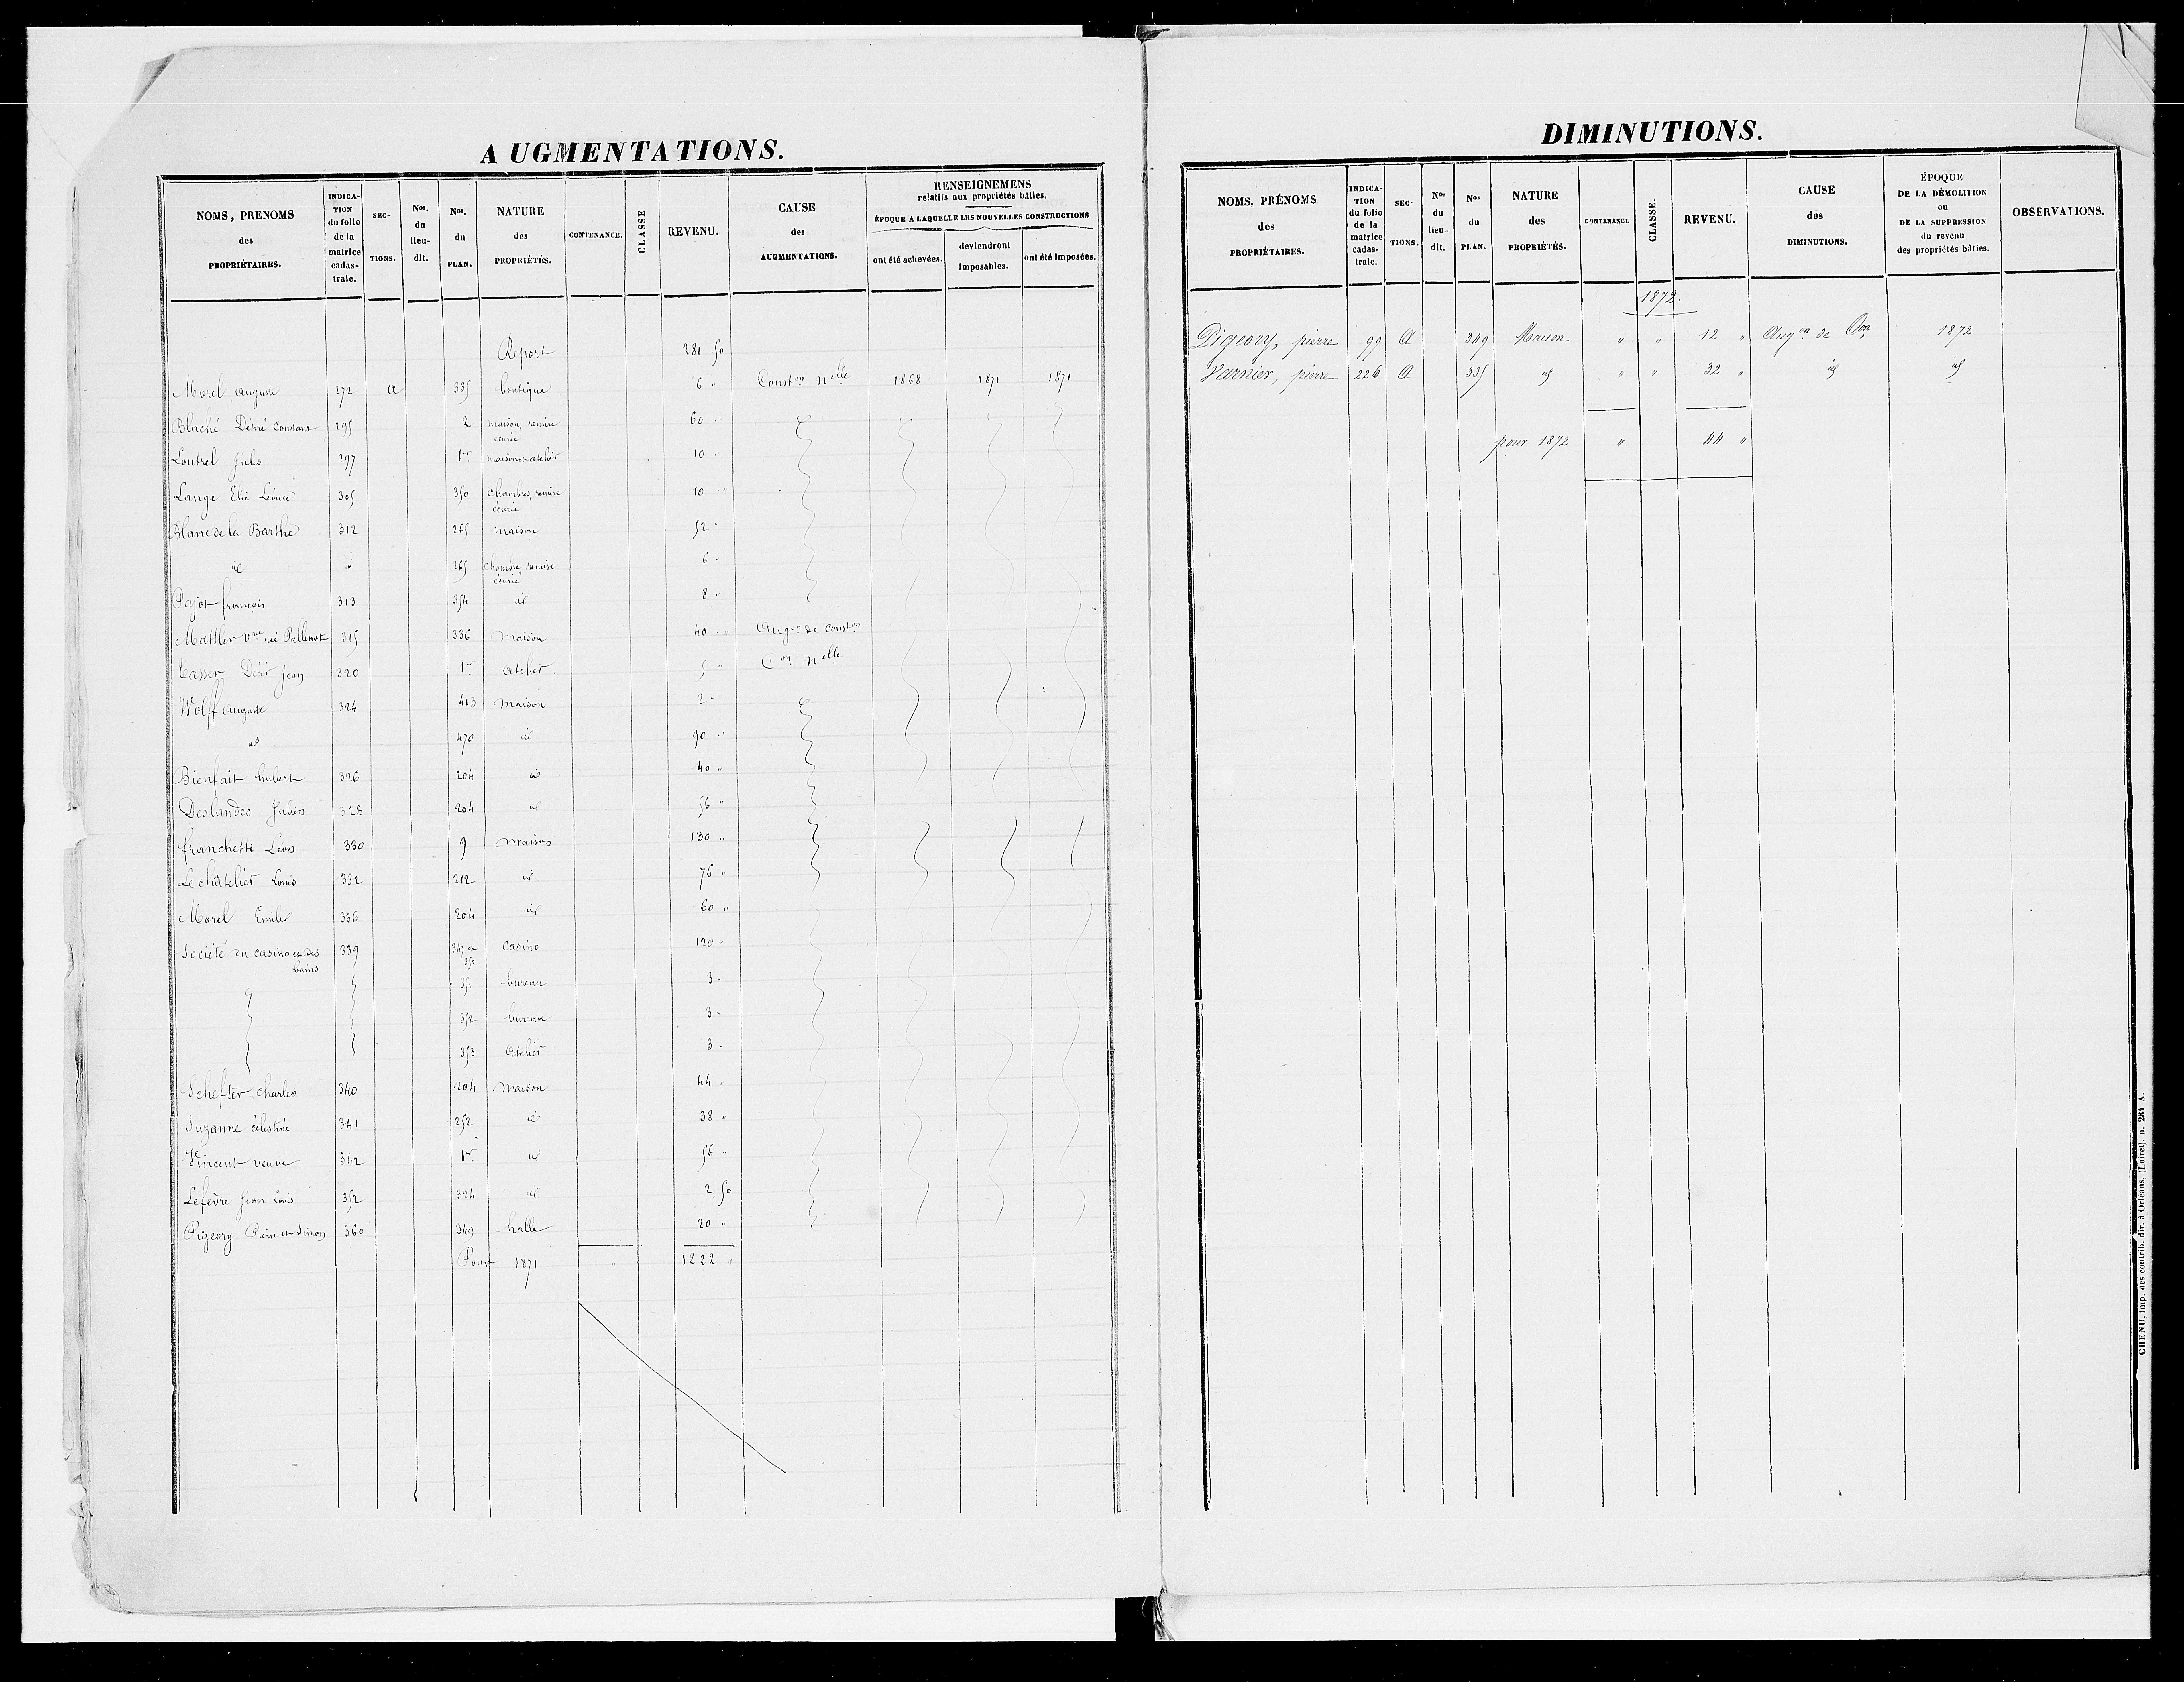 AUGMENTATIONS.
NOMS, PRENOMS des PROPRIÉTAIRES. | INDICATION du folio de la matrice cadastrale. | SECTIONS. | Nos. du lieu-dit. | Nos. du PLAN. | NATURE des PROPRIÉTÉS. | CONTENANCE. | CLASSE | REVENU. | CAUSE des AUGMENTATIONS. | RENSEIGNEMENS relatifs aux propriétés bâties. ÉPOQUE A LAQUELLE LES NOUVELLES CONSTRUCTIONS ont été achevées. | deviendront imposables. | ont été imposées.
Report 281 50
Morel Auguste 272 a 335 boutique 6 " Conston nelle 1868 1871 1871
Blaché Désiré Constant 295 2 maison, remise écurie 60 "
Loutrel Jules 297 1er maison et atelier 10 "
Lange Elie Léonce 305 350 Chambre, remise écurie 10 "
Blanc de la Barthe 312 265 maison 52 "
id " 265 Chambre, remise écurie 6 "
Pajot françois 313 354 id 8 "
Mattler vve née Pallenot 315 336 Maison 40 " Augon de Conston
Casser Désir Jean 320 1er atelier 5 " Con nelle
Wolff Auguste 324 413 Maison 2 "
id 470 id 90 "
Bienfait hubert 326 204 id 40 "
Deslandes Julien 328 204 id 56 "
franchetti Léon 330 9 maison 130 "
Le châtelier Louis 332 212 id 76 "
Morel Emile 336 204 id 60 "
Société du casino et des bains 339 349 et 352 Casino 120 "
351 bureau 3 "
352 bureau 3 "
353 Atelier 3 "
Schefter Charles 340 204 Maison 44 "
Suzanne célestine 341 252 id 38 "
Vincent veuve 342 1er id 56 "
Lefèvre Jean Louis 352 324 id 2 50
Pigeory Pierre et Simon 360 349 halle 20 "
Pour 1871 " 1222 "
DIMINUTIONS.
NOMS, PRÉNOMS des PROPRIÉTAIRES. | INDICATION du folio de la matrice cadastrale. | SECTIONS. | Nos du lieu-dit. | Nos du PLAN. | NATURE des PROPRIÉTÉS. | CONTENANCE | CLASSE. | REVENU. | CAUSE des DIMINUTIONS. | ÉPOQUE DE LA DÉMOLITION ou DE LA SUPPRESSION du revenu des propriétés bâties. | OBSERVATIONS.
1872.
Pigeory, pierre 99 A 349 Maison " " 12 " Augon de Con 1872
Varnier, pierre 226 A 335 id " " 32 " id id
pour 1872 " 44 "
CHENU, imp. des contrib. dir. à Orléans, (Loiret). n. 284 A.